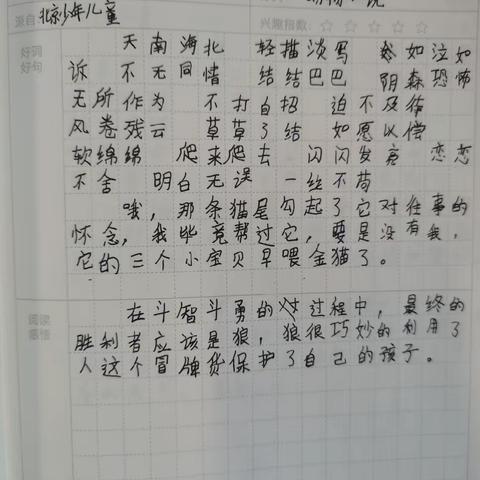 来自 北京少年儿童
兴趣指数：☆ ☆ ☆ ☆ ☆
好词
好句
天南海北 轻描淡写 如泣如
诉 不无同情 结结巴巴 阴森恐怖
无所作为 不打自招 迫不及待
风卷残云 草草了结 如愿以偿
软绵绵 爬来爬去 闪闪发亮 恋恋
不舍 明白无误 一丝不苟
哦，那条猫尾勾起了它对往事的
怀念，我毕竟帮过它，要是没有我，
它的三个小宝贝早喂金猫了。
阅读
感悟
在斗智斗勇的过程中，最终的
胜利者应该是狼，狼很巧妙的利用了
人这个冒牌货保护了自己的孩子。